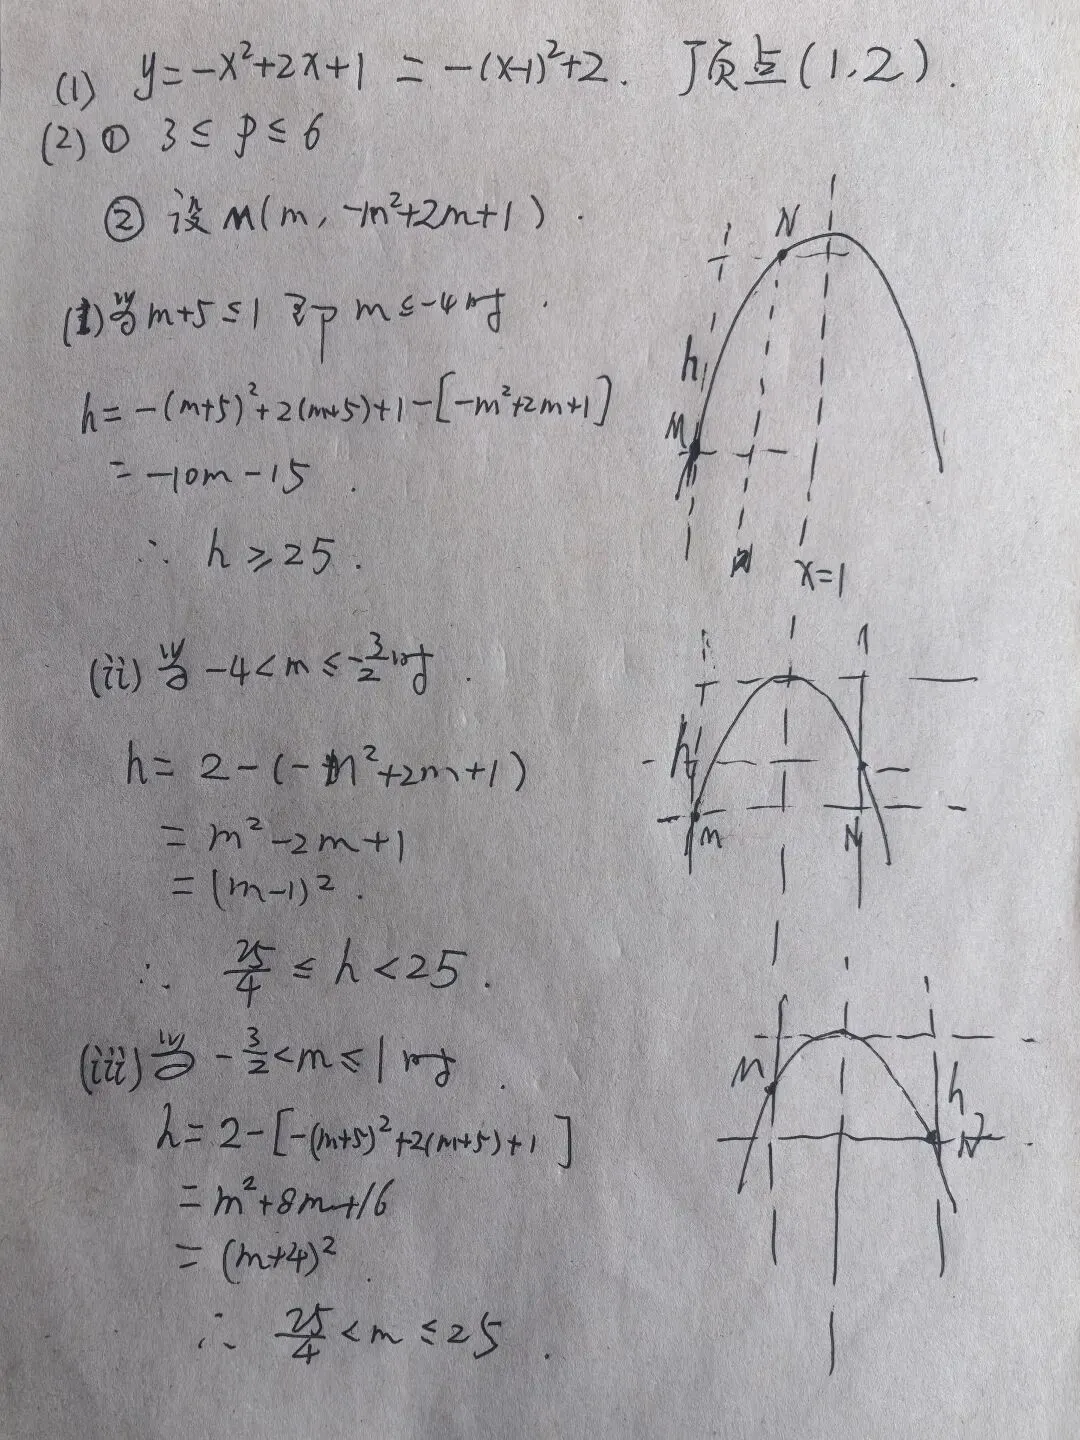 (1) y=-x²+2x+1 = -(x-1)²+2. 顶点(1,2).
(2) ① 3≤p≤6
② 设M(m, -m²+2m+1).
(i)当m+5≤1 即m≤-4时.
h=-(m+5)²+2(m+5)+1-[-m²+2m+1]
=-10m-15.
∴ h≥25.
(ii)当-4<m≤-3/2时.
h=2-(-m²+2m+1)
=m²-2m+1
=(m-1)².
∴ 25/4≤h<25.
(iii)当-3/2<m≤1时.
h=2-[-(m+5)²+2(m+5)+1]
=m²+8m+16
=(m+4)²
∴ 25/4<m≤25.
N
h
M
x=1
h
m
N
M
h
N